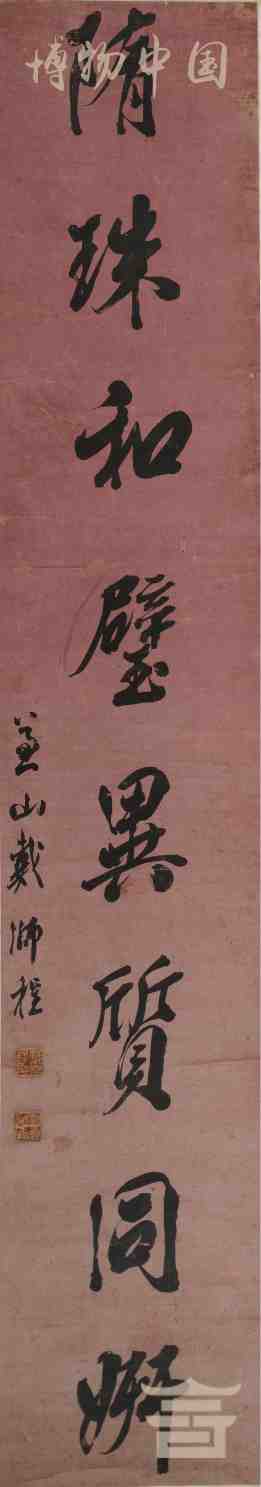 博物中国
隋珠和璧異質同妍
兼山戴師程